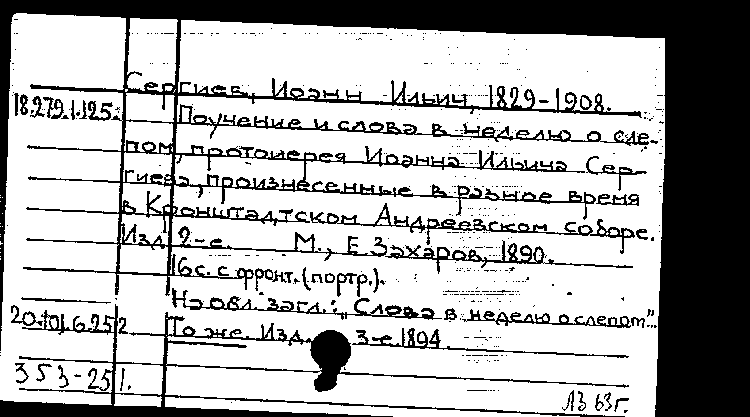 Сергиев, Иоанн Ильич, 1829-1908.
18.279.1.125. Поучение и слова в неделю о сле-
пом, протоиерея Иоанна Ильича Сер-
гиева, произнесенные в разное время
в Кронштадтском Андреевском соборе.
Изд. 2-е. М., Е. Захаров, 1890.
16 с. с фронт. (портр.).
На обл. загл.: „Слова в неделю о слепом".
То же. Изд. 3-е. 1894.
353-25 1.
ЛЗ 63г